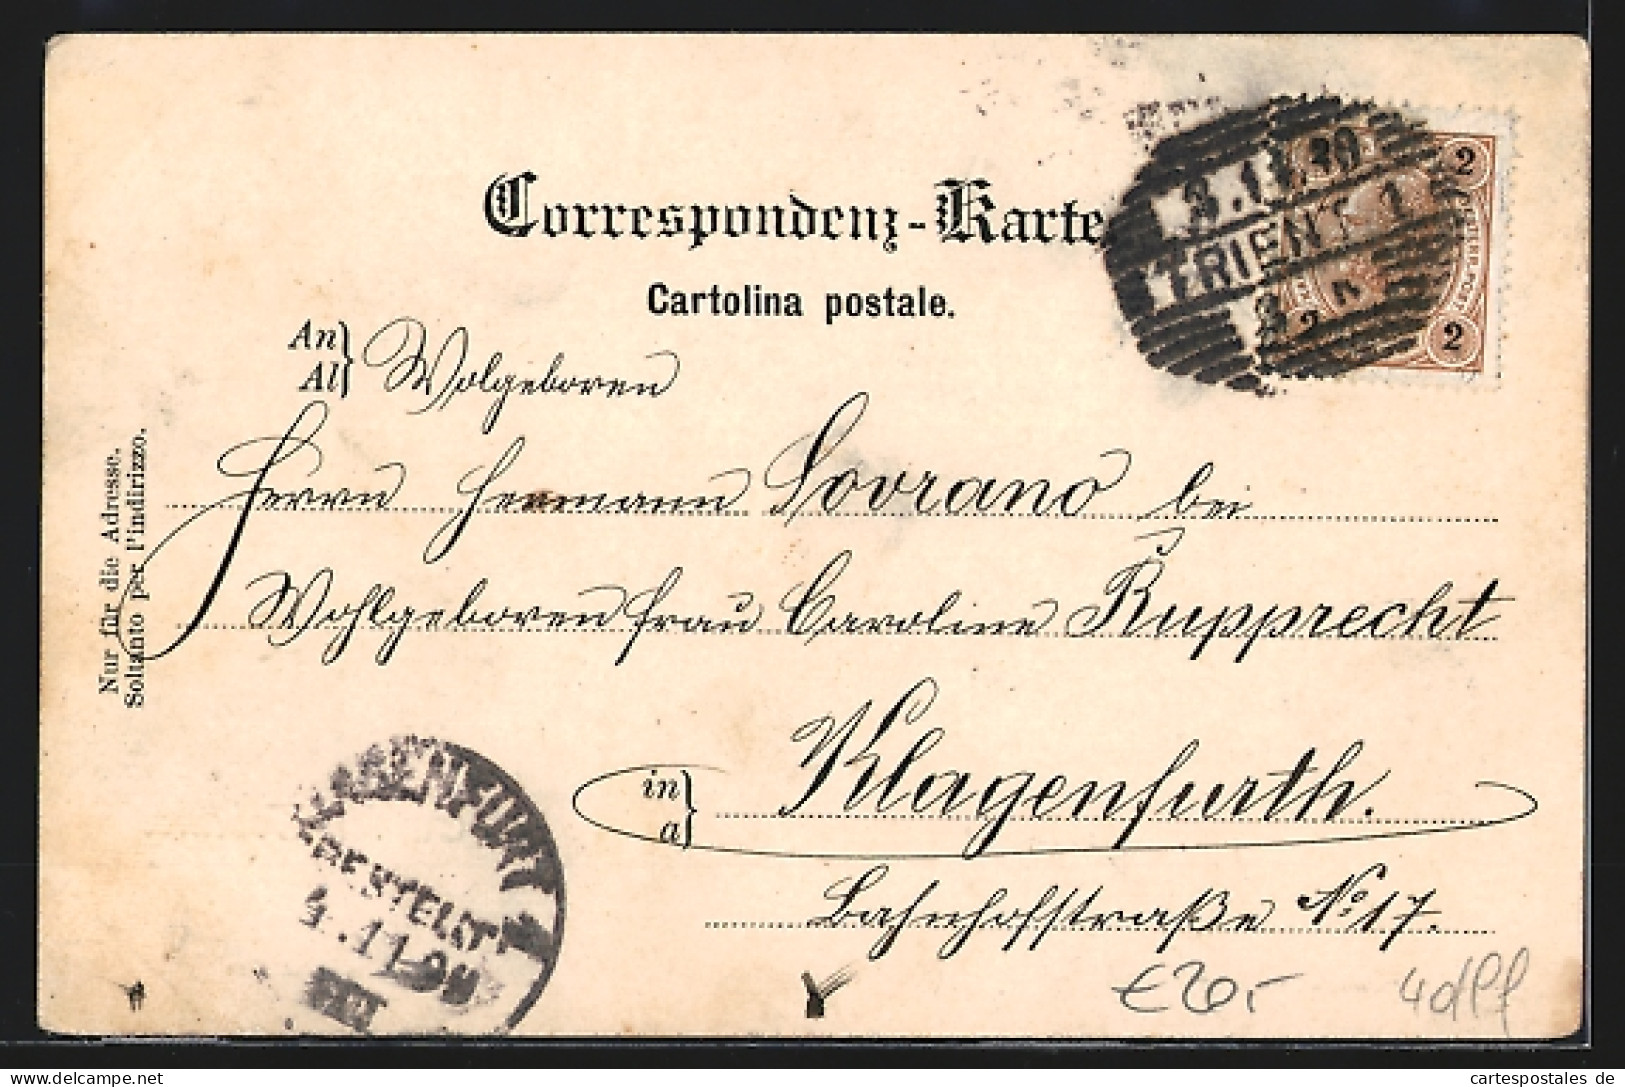 Correspondenz-Karte
Cartolina postale.
3.11.99
TRIENT 1
2
2
2
An
Al
Wolgeboren
Herrn Hermann Sovrano bei
Wohlgeboren Frau Caroline Rupprecht
in
a
Klagenfurth.
Bahnhofstraße No 17.
Nur für die Adresse.
Soltanto per l'indirizzo.
KLAGENFURT
BESTELLT
4.11.99
€20,-
cartespostales de